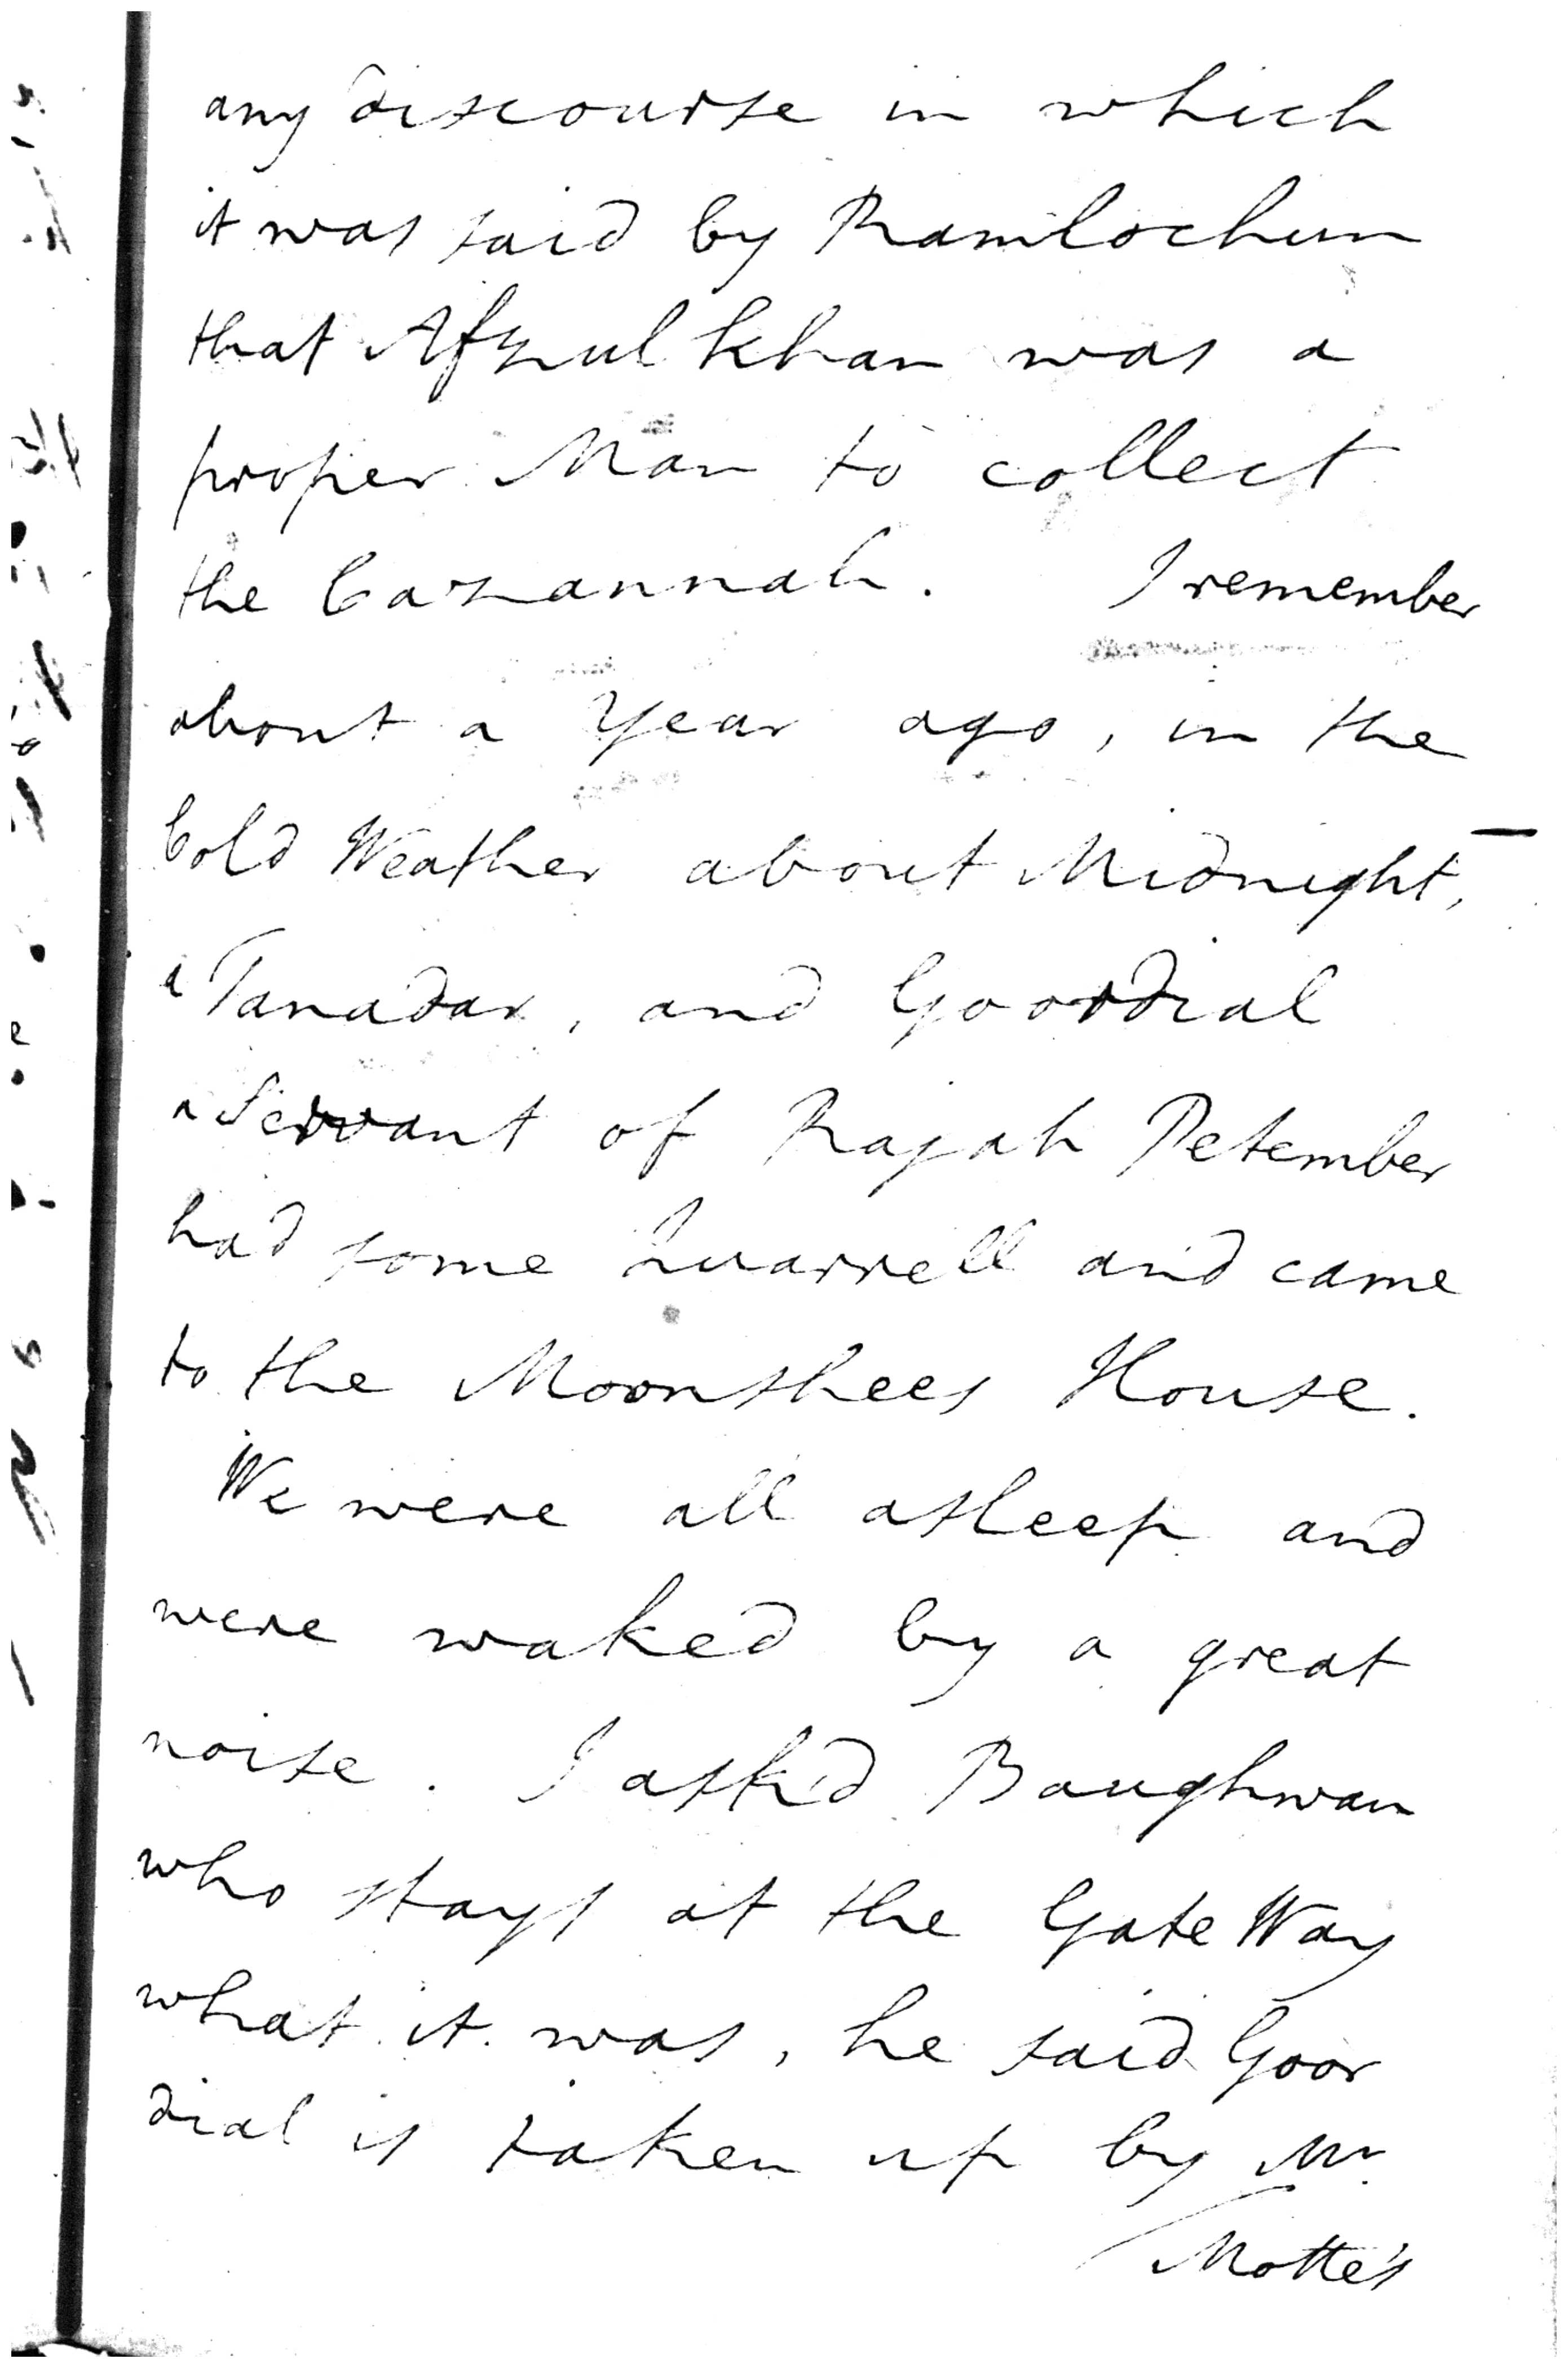 any discourse in which
it was said by Ramlochun
that Afzul Khan was a
proper Man to collect
the Cazannah. I remember
about a Year ago, in the
Cold Weather about Midnight,
a Tanadar, and Goordial
a Servant of Rajah Petember
had some Quarrell and came
to the Moonshees House.
We were all asleep and
were waked by a great
noise. I ask'd Baughwan
who stays at the Gate Way
what it was, he said Goor
dial is taken up by Mr
Motte's